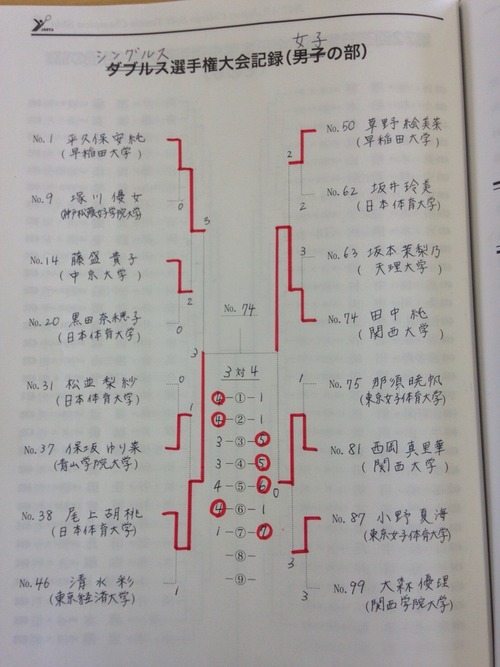 シングルス 女子
ダブルス選手権大会記録(男子の部)
No. 1 平久保安純
(早稲田大学)
No. 9 塚川優女
0
No. 14 藤盛貴子
(中京大学)
3
2
No. 20 黒田奈穂子
(日本体育大学)
0
No. 31 松並梨紗
(日本体育大学)
0
3
1
No. 37 保坂ゆり菜
(青山学院大学)
No. 38 尾上胡桃
(日本体育大学)
No. 46 清水彩
(東京経済大学)
1
No. 74
3 対 4
4-①-1
4-②-1
3-③-5
3-④-5
4-⑤-6
4-⑥-1
1-⑦-7
-⑧-
-⑨-
No. 50 草野絵美菜
(早稲田大学)
2
No. 62 坂井玲美
(日本体育大学)
2
No. 63 坂本茉梨乃
(天理大学)
3
No. 74 田中純
(関西大学)
No. 75 那須暁帆
(東京女子体育大学)
1
No. 81 西岡真里華
(関西大学)
0
No. 87 小野夏海
(東京女子体育大学)
3
No. 99 大森優理
(関西学院大学)
3